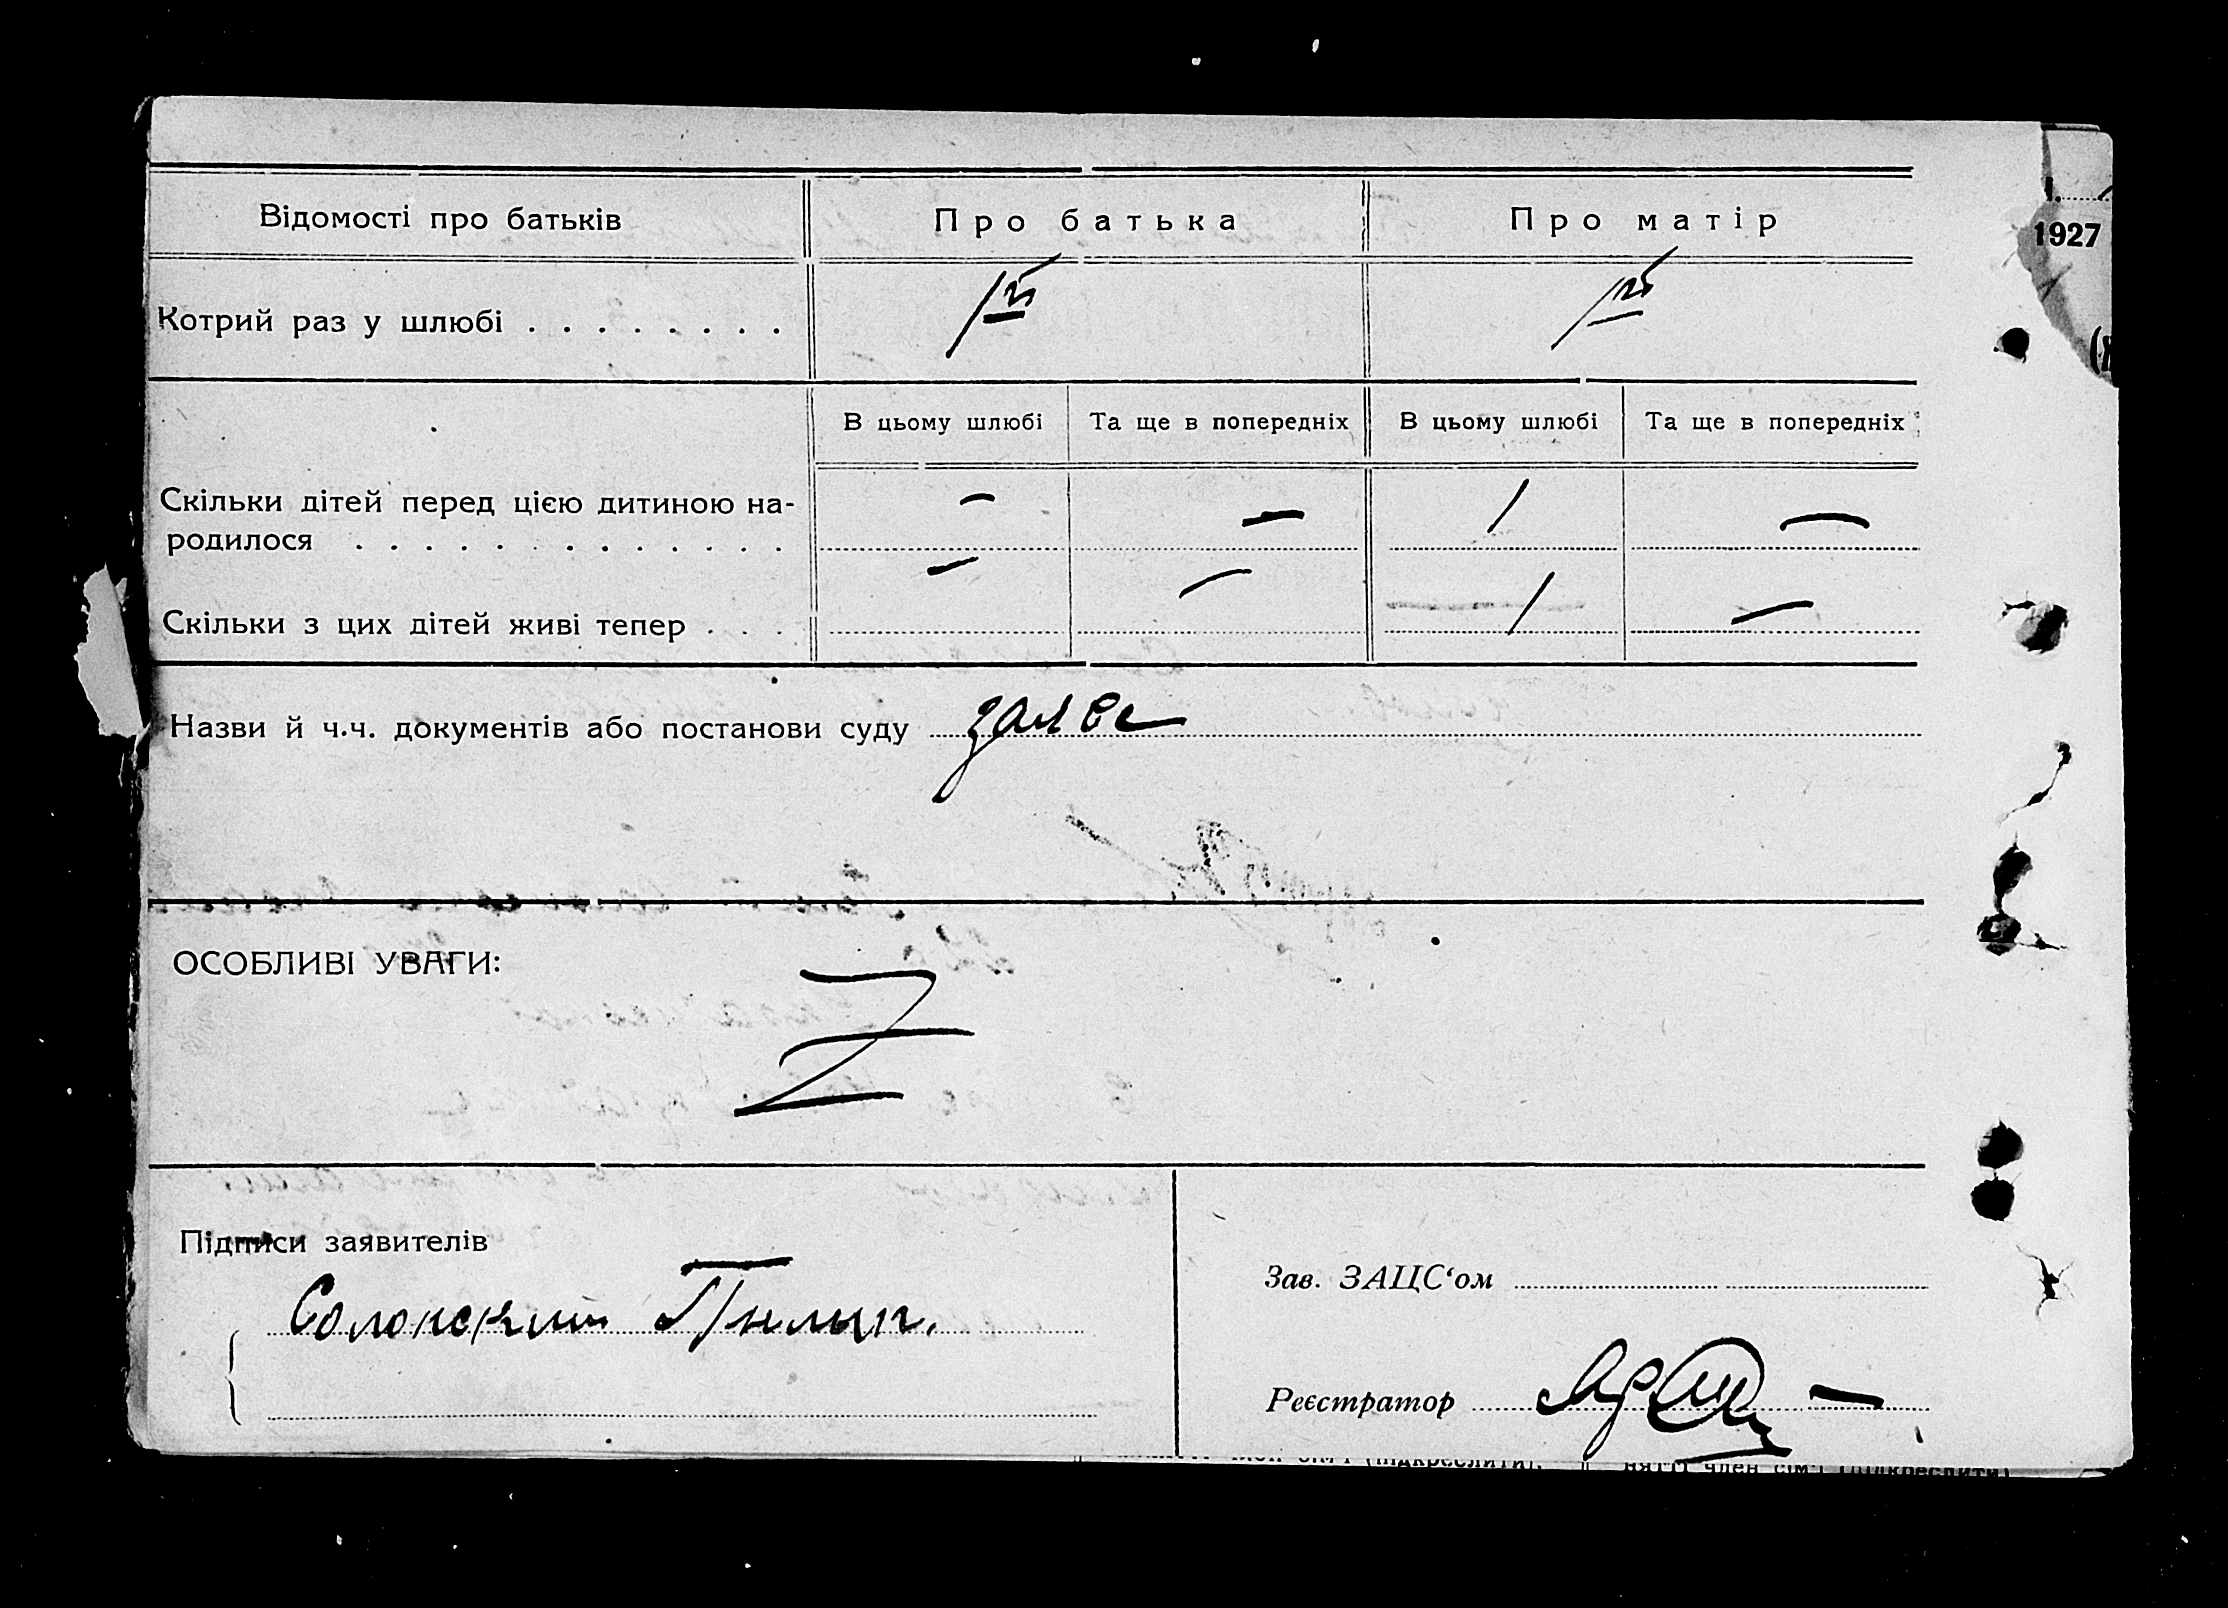 Відомості про батьків Про батька Про матір
1927
Котрий раз у шлюбі . . . . . . . . 1й 1й
В цьому шлюбі Та ще в попередніх В цьому шлюбі Та ще в попередніх
Скільки дітей перед цією дитиною на-
родилося . . . . . . . . . . . . . – – 1 –
Скільки з цих дітей живі тепер . . . – – 1 –
Назви й ч.ч. документів або постанови суду
ОСОБЛИВІ УВАГИ:
Z
Підписи заявителів
Солонский Пилип.
Зав. ЗАЦС‘ом
Реєстратор